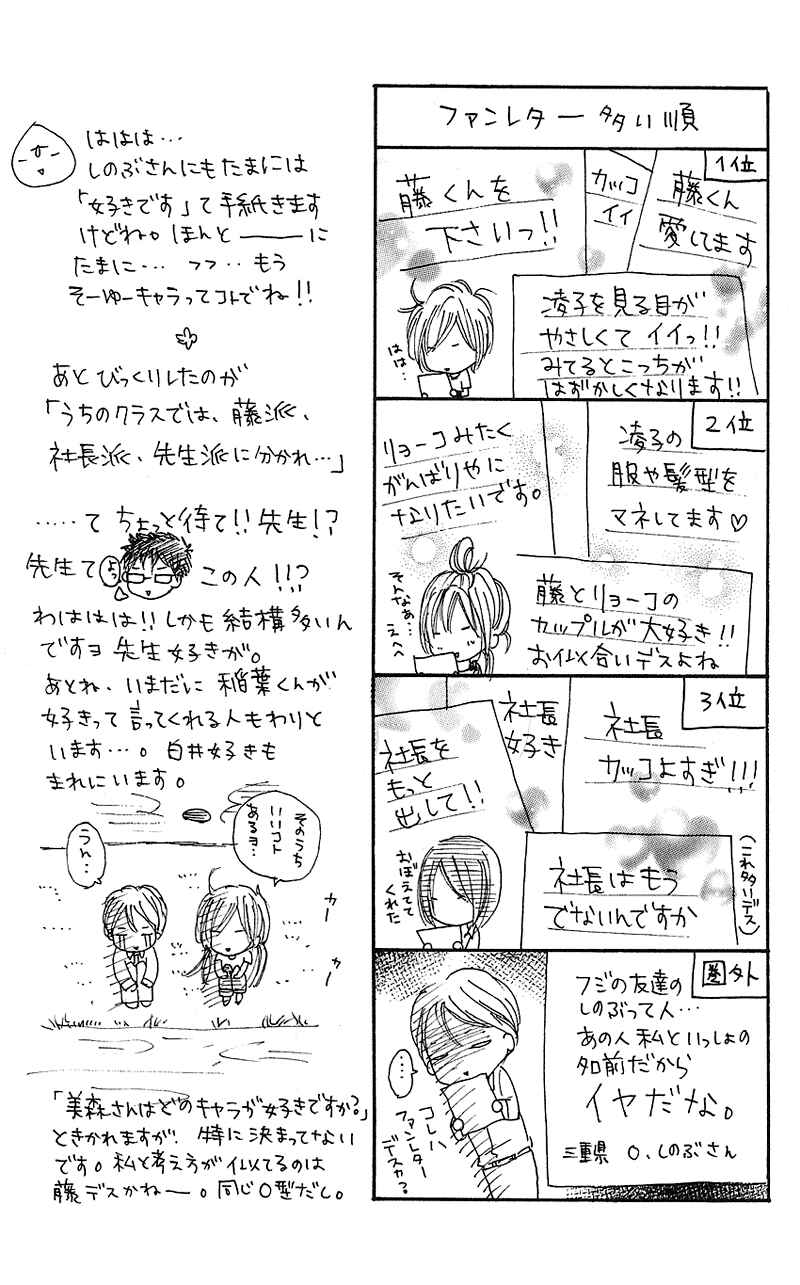 ファンレター多い順
1位
藤くん
愛してます
カッコ
イイ
藤くんを
下さいっ!!
凌子を見る目が
やさしくてイイっ!!
みてるとこっちが
はずかしくなります!!
はは…
2位
凌子の
服や髪型を
マネしてます♡
リョーコみたく
がんばりやに
なりたいです。
藤とリョーコの
カップルが大好き!!
お似合いデスよね
そんなぁ…
えへへ
3位
社長
カッコよすぎ!!!
社長
好き
社長を
もっと
出して!!
社長はもう
でないんですか
(これ多いデス)
おぼえてて
くれた
圏外
フジの友達の
しのぶって人…
あの人私といっしょの
名前だから
イヤだな。
三重県 O.しのぶさん
…
コレハ
ファンレター
デスカ?
ははは…
しのぶさんにもたまには
「好きです」て手紙きます
けどね。ほんと――に
たまに… フフ‥もう
そーゆーキャラってコトでね!!
あとびっくりしたのが
「うちのクラスでは、藤派、
社長派、先生派に分かれ…」
‥‥‥て ちょっと待て!!先生!?
先生て よっ この人!!?
わははは!!しかも結構多いん
ですヨ 先生好きが。
あとね、いまだに 稲葉くんが
好きって言ってくれる人もわりと
います…。白井好きも
まれにいます。
そのうち
いいコト
あるヨ…
うん…
カー
カー
「美森さんはどのキャラが好きですか?」
ときかれますが、特に決まってない
です。私と考え方が似てるのは
藤デスかねー。同じO型だし。